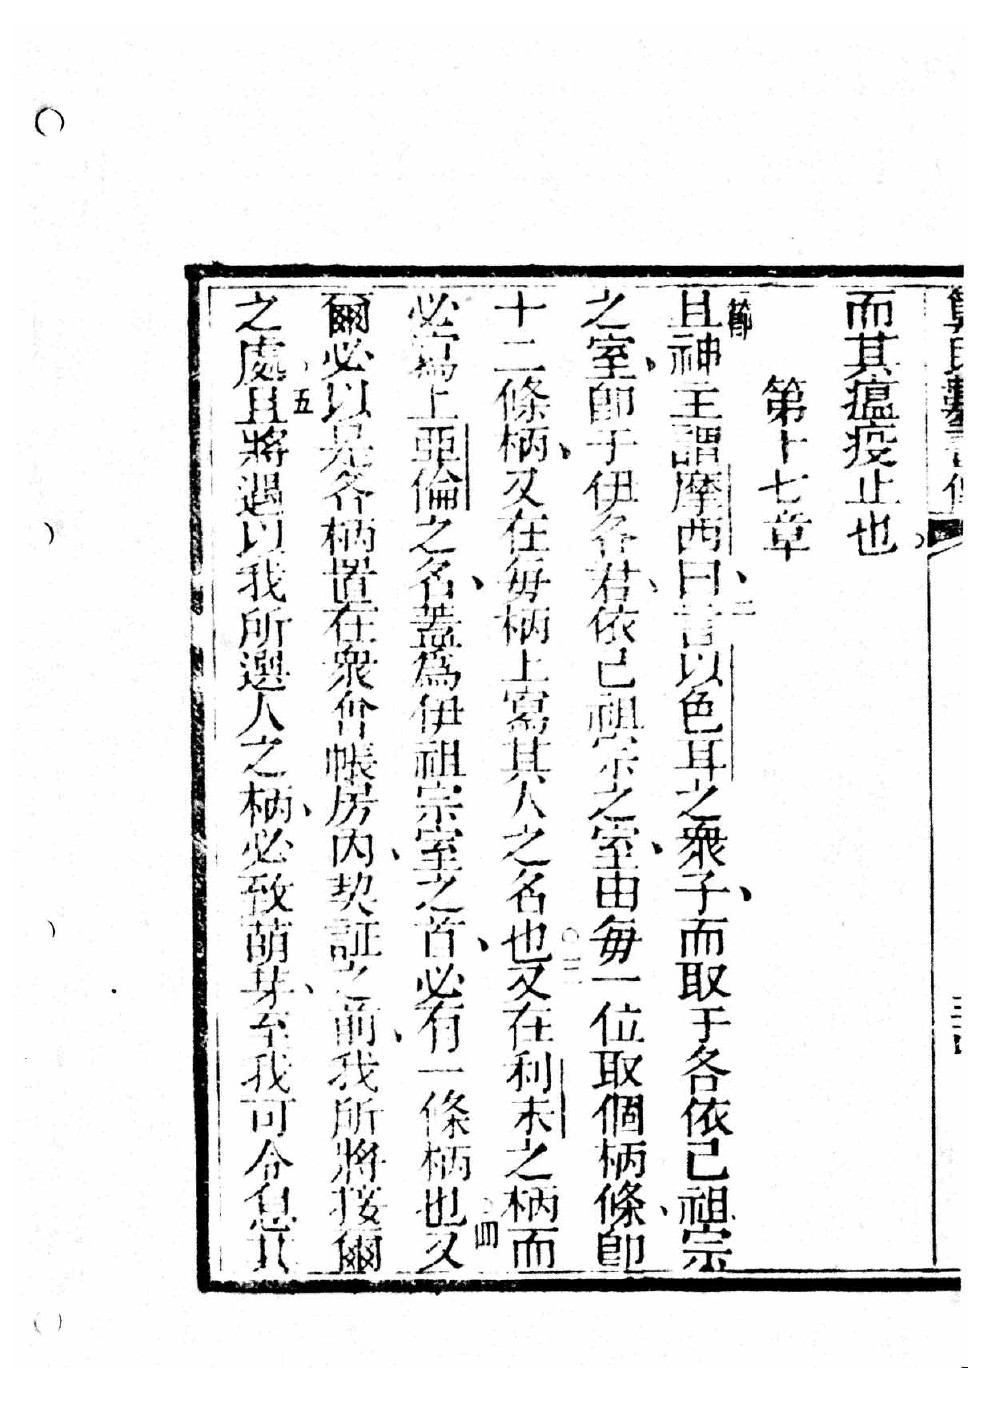 而其瘟疫止也
第十七章
節 且神主謂摩西曰、二言以色耳之衆子、而取于各依己祖宗
之室、卽于伊各君、依己祖宗之室、由每一位取個柄條、卽
十二條柄、又在每柄上寫其人之名也○三又在利未之柄而
必寫上亞倫之名、蓋爲伊祖宗室之首、必有一條柄也四又
爾必以是各柄置在衆會帳房內、契証之前、我所將接爾
之處五且將遇以我所選人之柄、必致萌芽、至我可令息其